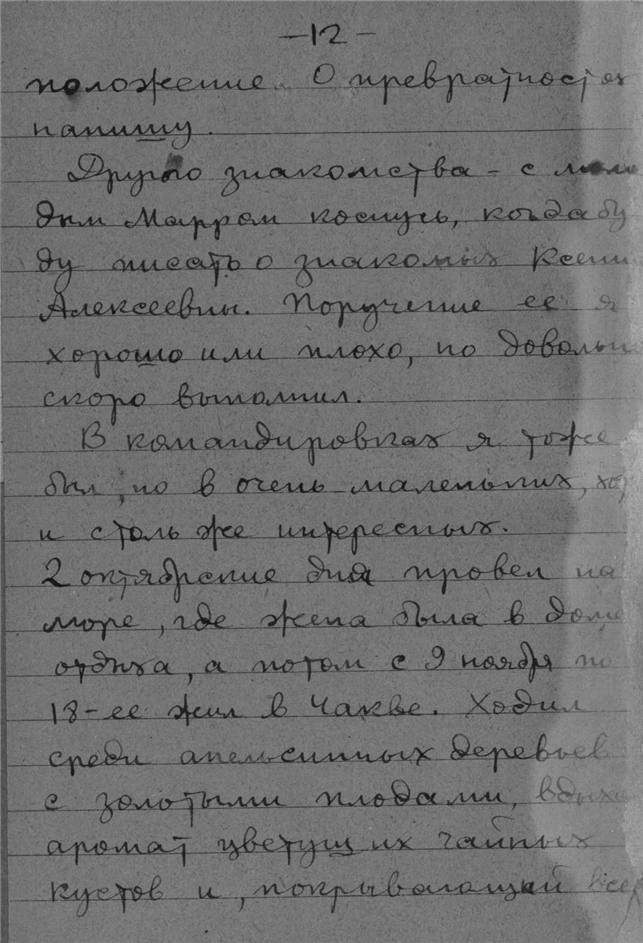 -12-
положение. О превратностях
напишу.
Другого знакомства - с моло
дым Марром коснусь, когда бу
ду писать о знакомых Ксении
Алексеевны. Поручение ее я
хорошо или плохо, но довольно
скоро выполнил.
В командировках я тоже
был, но в очень маленьких, хо
и столь же интересных.
2 октябрские дня провел на
море, где жена была в доме
отдыха, а потом с 9 ноября по
18-ее жил в Чакве. Ходил
среди апельсинных деревьев
с золотыми плодами, вдыхал
аромат цветущих чайных
кустов и, покрывающий все